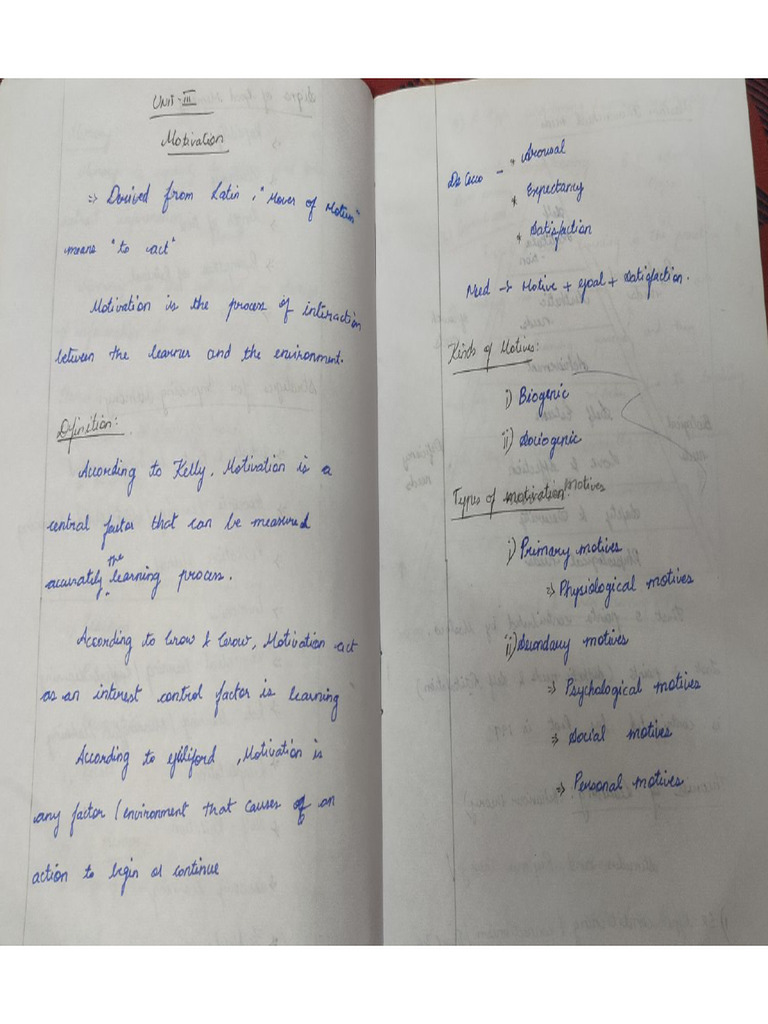 Unit-III
Motivation
=> Derived from Latin, "Mover of Motum"
means "to act"
Motivation is the process of interaction
between the learner and the environment.
Definition:
According to Kelly, Motivation is a
central factor that can be measured
accurately the learning process.
According to Crow & Crow, Motivation act
as an interest control factor is learning
According to Guilford, Motivation is
any factor / environment that causes of an
action to begin or continue
De Cecco - * Arousal
* Expectancy
* Satisfaction
Need → Motive + Goal + Satisfaction.
Kinds of Motives:
i) Biogenic
ii) Sociogenic
Types of motivation: Motives
i) Primary motives
=> Physiological motives
ii) Secondary motives
=> Psychological motives
=> Social motives
=> Personal motives